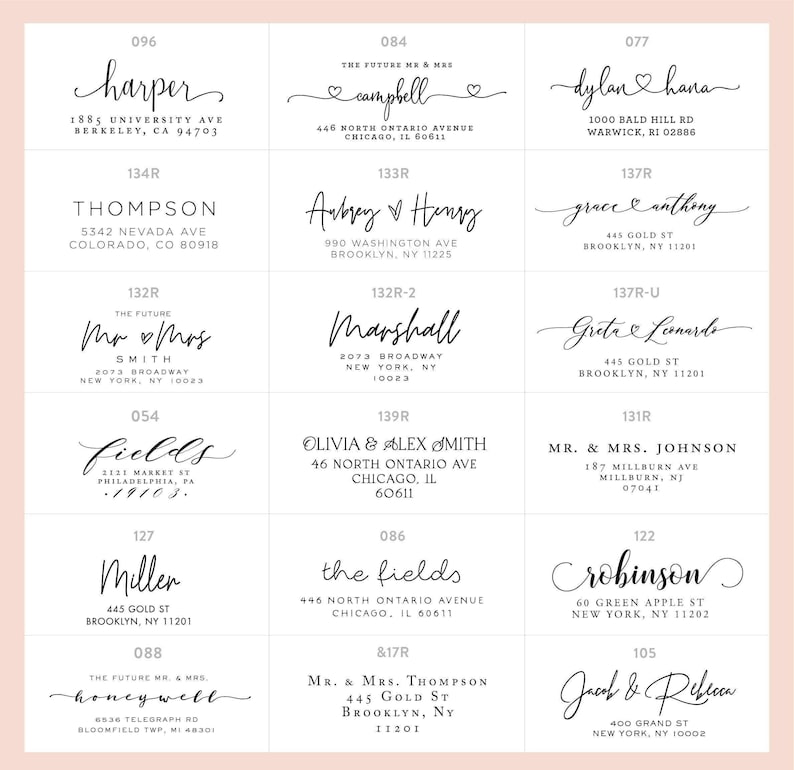 096
harper
1885 UNIVERSITY AVE
BERKELEY, CA 94703
084
THE FUTURE MR & MRS
campbell
446 NORTH ONTARIO AVENUE
CHICAGO, IL 60611
077
dylan hana
1000 BALD HILL RD
WARWICK, RI 02886
134R
THOMPSON
5342 NEVADA AVE
COLORADO, CO 80918
133R
Aubrey Henry
990 WASHINGTON AVE
BROOKLYN, NY 11225
137R
grace anthony
445 GOLD ST
BROOKLYN, NY 11201
132R
THE FUTURE
Mr Mrs
SMITH
2073 BROADWAY
NEW YORK, NY 10023
132R-2
Marshall
2073 BROADWAY
NEW YORK, NY
10023
137R-U
Greta Leonardo
445 GOLD ST
BROOKLYN, NY 11201
054
fields
2121 MARKET ST
PHILADELPHIA, PA
· 19103 ·
139R
OLIVIA & ALEX SMITH
46 NORTH ONTARIO AVE
CHICAGO, IL
60611
131R
MR. & MRS. JOHNSON
187 MILLBURN AVE
MILLBURN, NJ
07041
127
Miller
445 GOLD ST
BROOKLYN, NY 11201
086
the fields
446 NORTH ONTARIO AVENUE
CHICAGO, IL 60611
122
robinson
60 GREEN APPLE ST
NEW YORK, NY 11202
088
THE FUTURE MR. & MRS.
honeywell
6536 TELEGRAPH RD
BLOOMFIELD TWP, MI 48301
&17R
MR. & MRS. THOMPSON
445 GOLD ST
BROOKLYN, NY
11201
105
Jacob & Rebecca
400 GRAND ST
NEW YORK, NY 10002